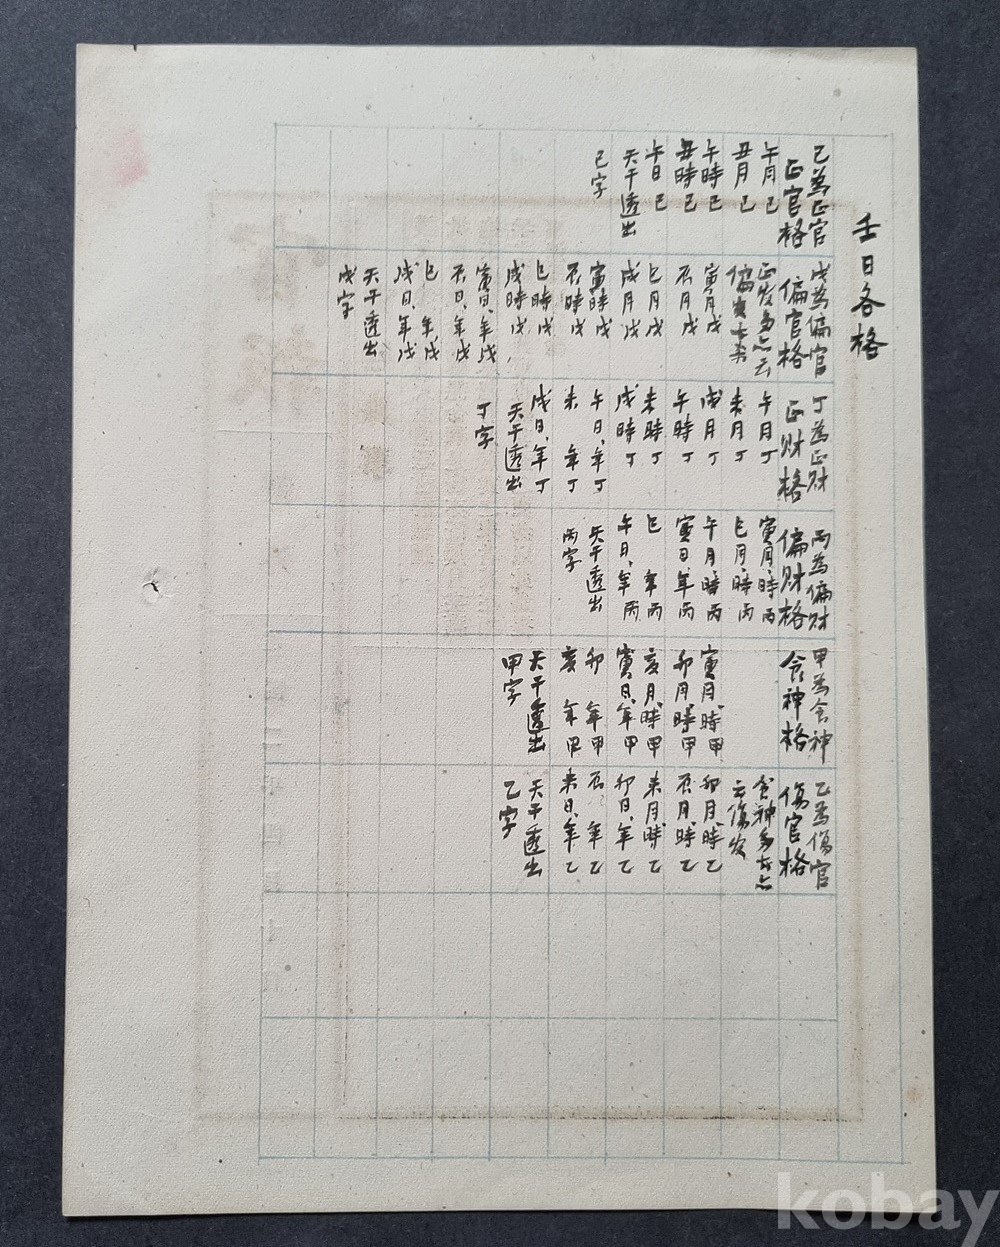 壬日各格
己為正官
正官格
午月己
丑月己
午時己
丑時己
午日己
天干透出
己字
戊為偏官
偏官格
寅月戊
辰月戊
巳月戊
戌月戊
寅時戊
辰時戊
巳時戊
戌時戊
寅日、年戊
辰日、年戊
巳 年戊
戌日、年戊
天干透出
戊字
丁為正財
正財格
午月丁
未月丁
戌月丁
午時丁
未時丁
戌時丁
午日、年丁
未 年丁
戌日、年丁
天干透出
丁字
丙為偏財
偏財格
寅月、時丙
巳月、時丙
午月、時丙
寅日、年丙
巳 年丙
午日、年丙
天干透出
丙字
甲為食神
食神格
寅月、時甲
卯月、時甲
亥月、時甲
寅日、年甲
卯 年甲
亥 年甲
天干透出
甲字
乙為傷官
傷官格
食神多
卯月、時乙
辰月、時乙
未月、時乙
卯日、年乙
辰 年乙
未日、年乙
天干透出
乙字
kobay